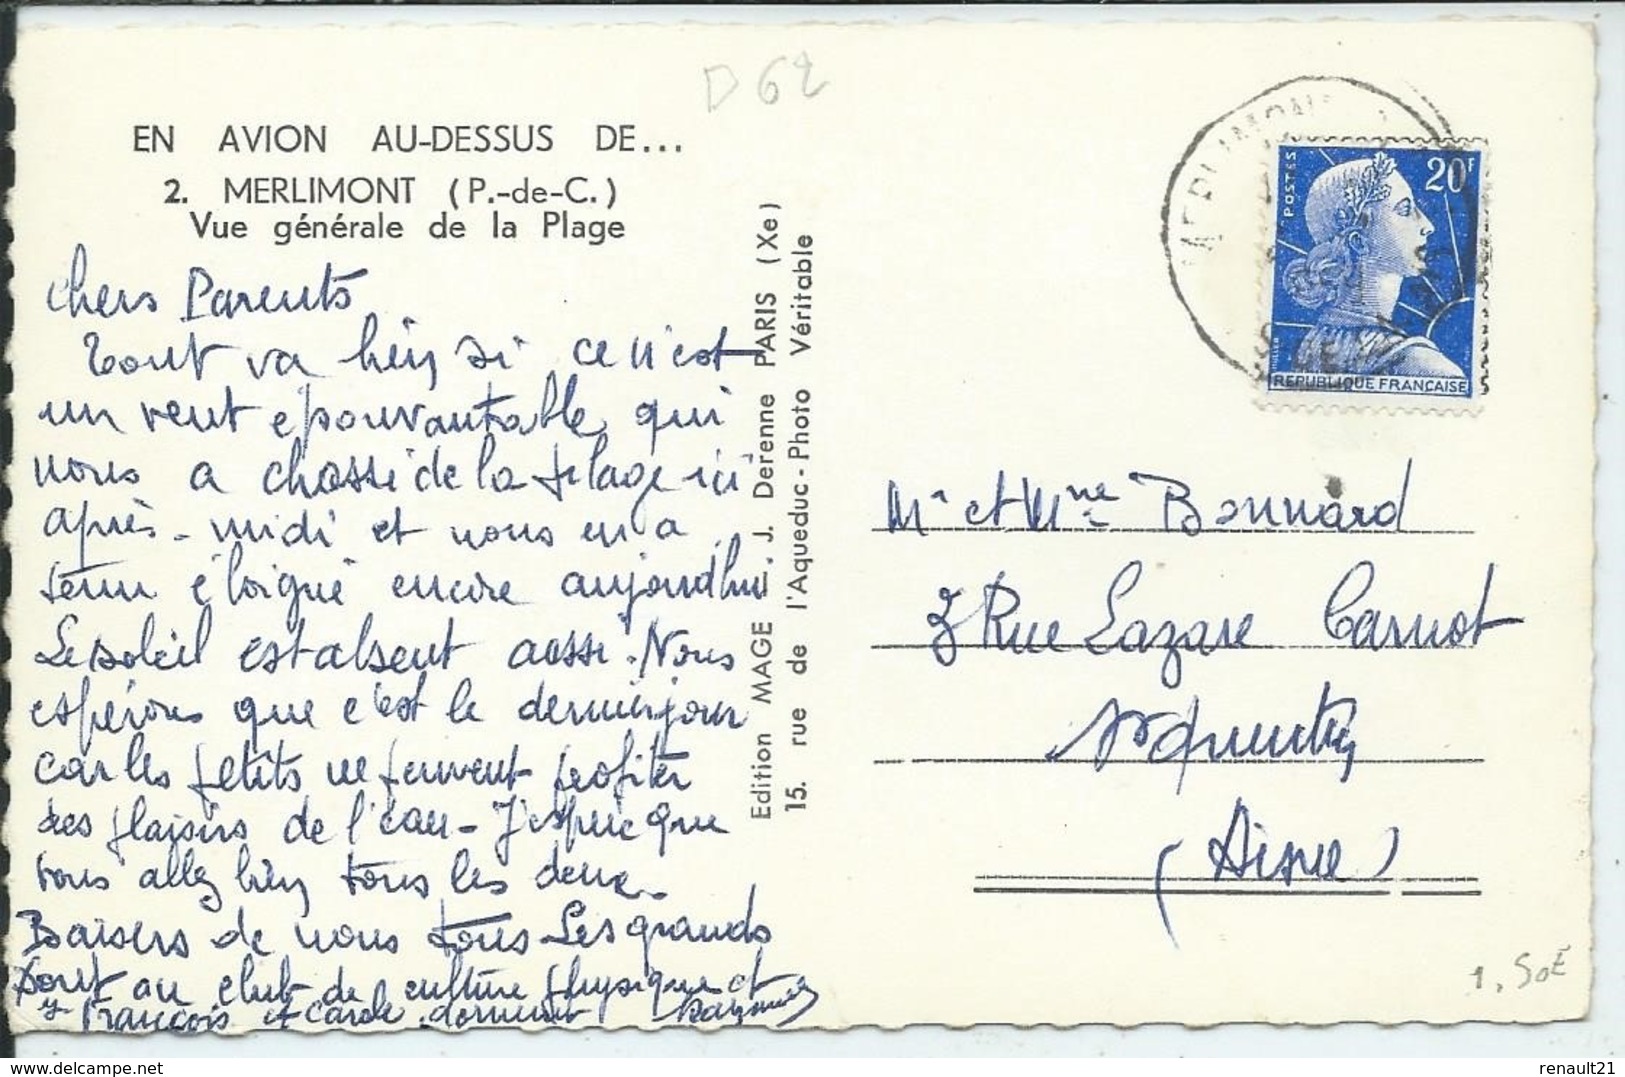 D 62
EN AVION AU-DESSUS DE...
2. MERLIMONT (P.-de-C.)
Vue générale de la Plage
Chers Parents
Tout va bien si ce n'est
un vent épouvantable qui
nous a chassé de la plage ici
après-midi et nous en a
tenu éloigné encore aujourd'hui
Le soleil est absent aussi. Nous
espérons que c'est le dernier jour
car les petits ne peuvent profiter
des plaisirs de l'eau - J'espère que
vous allez bien tous les deux.
Baisers de nous tous Les grands
sont au club de culture physique et
François et Carole dorment
Edition MAGE J. Derenne PARIS (Xe)
15. rue de l'Aqueduc - Photo Véritable
MERLIMONT
POSTES
20F
MULLER
REPUBLIQUE FRANÇAISE
Mr et Mme Bonnard
3 Rue Lazare Carnot
St Quentin
(Aisne)
1,50E
renault21